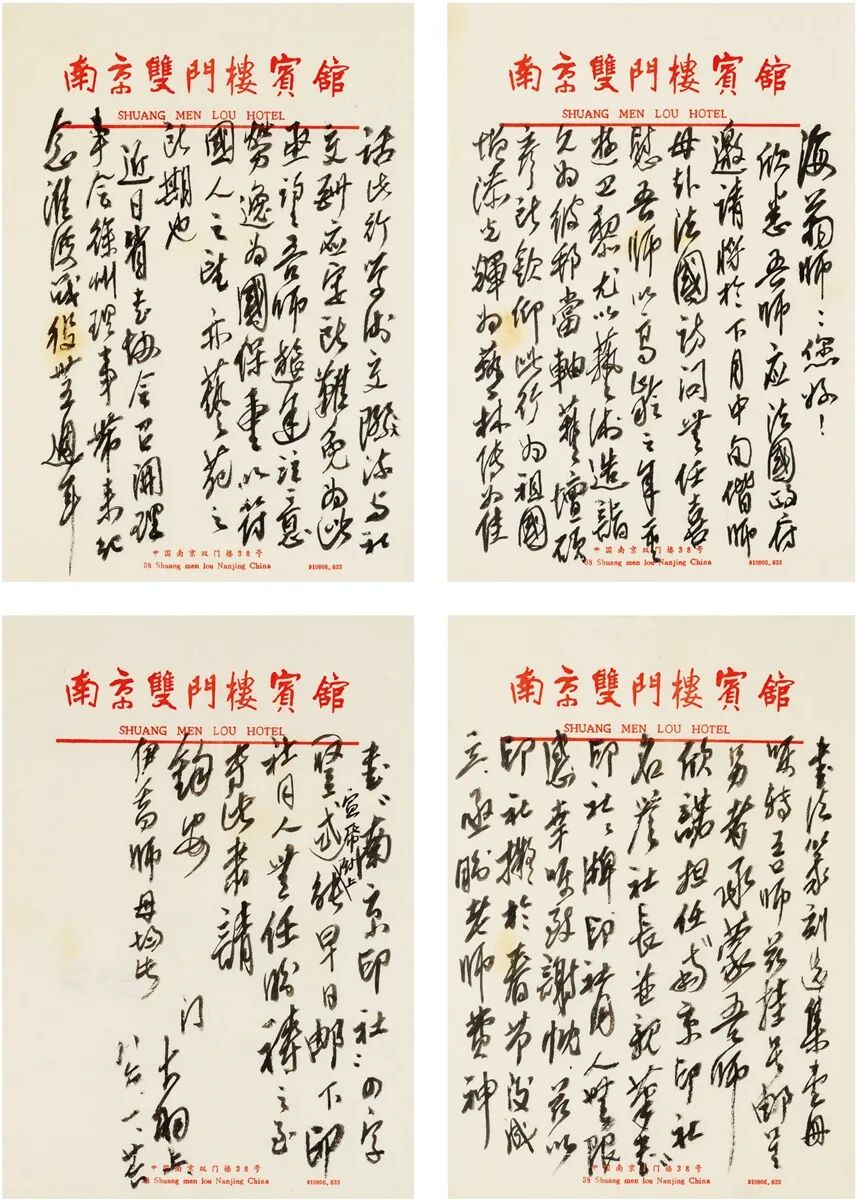 南京雙門樓賓館
SHUANG MEN LOU HOTEL
海翁師：您好！
欣悉吾師应法國政府
邀請將於下月中旬偕師
母赴法國訪问無任喜
慰吾師以高齡之年重
遊巴黎尤以藝術造詣
久为彼邦當軸藝壇碩
彦所欽仰此行为祖國
增添光輝为藝林传为佳
中国南京双门楼38号
38 Shuang men lou Nanjing China 910806.833
南京雙門樓賓館
SHUANG MEN LOU HOTEL
話此行学術交際流与社
交酬应宴所難免为此
亟望吾師注意
勞逸为國保重以符
國人之望亦藝苑之
所期也
近日省书協会召開理
事会徐州理事帶来纪
念淮海戰役卅五週年
中国南京双门楼38号
38 Shuang men lou Nanjing China 910806.833
南京雙門樓賓館
SHUANG MEN LOU HOTEL
書法篆刻选集壹冊
嘱转吾師兹挂号邮呈
另者承蒙吾師
欣諾担任南京印社
名誉社長並親筆书
印社社牌印社同人無限
感幸嘱致謝忱兹以
印社擬於春节後成
立亟盼老師費神
中国南京双门楼38号
38 Shuang men lou Nanjing China 910806.833
南京雙門樓賓館
SHUANG MEN LOU HOTEL
書南京印社四字
豎式能早日邮下印
宣帋附上
社同人無任盼禱之至
专此恭請
鈞安
伊喬師母均此
门 大羽上
中国南京双门楼38号
38 Shuang men lou Nanjing China 910806.833